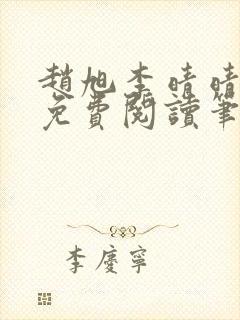 趙旭李晴晴
免費閱讀筆
李慶寧